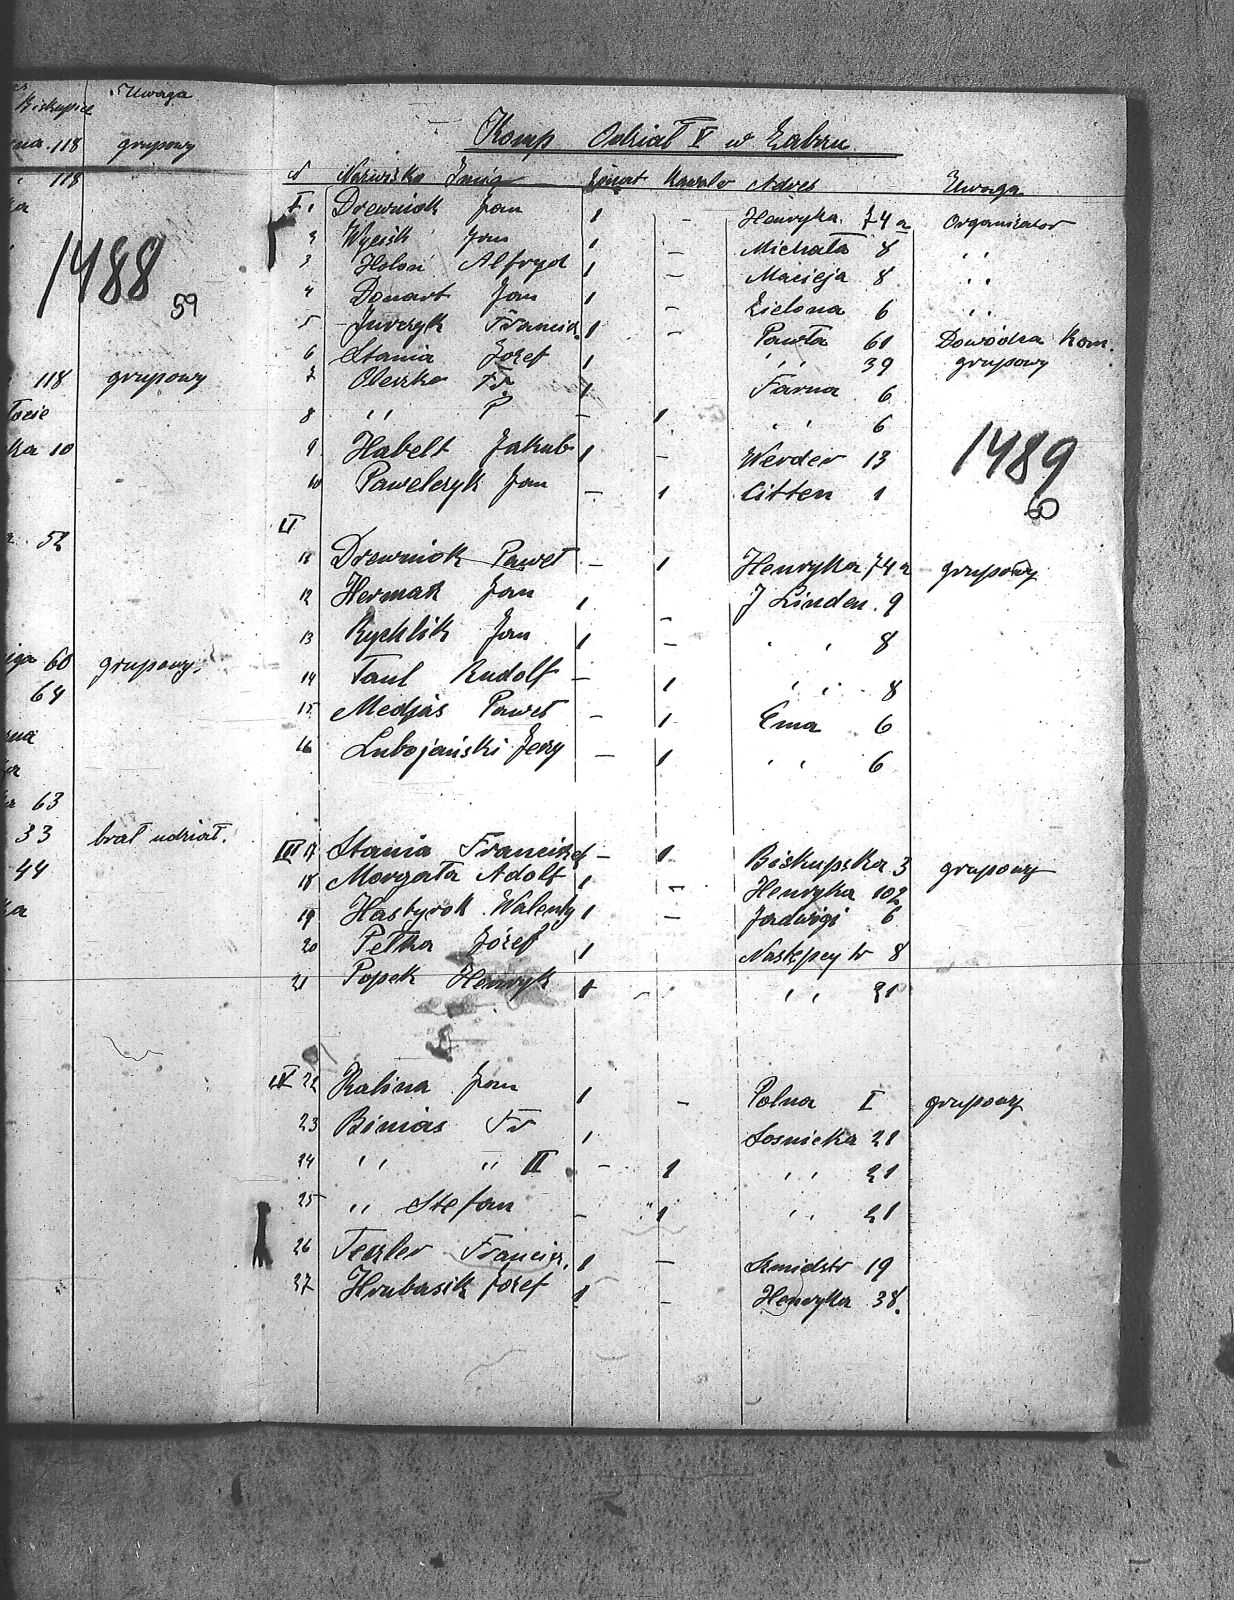 Biskupice Uwaga
118 grupowy
118
1488
59
118 grupowy
ka 10
52
60 grupowy.
64
63
33 brał udział.
44
Komp Odział V w Zabrzu
Nazwisko Imię Żonat Kawaler Adres Uwaga
I 1 Drewniok Jan 1 - Henryka 74a Organizator
2 Wycisk Jan 1 - Michała 8 ,,
3 Alfryd 1 - Macieja 8 ,,
4 Donart Jan 1 - Zielona 6 ,,
5 Jurczyk Francisz. 1 - Pawła 61 Dowódca Kom.
6 Stania Józef 1 ,, 39 grupowy
7 Oleszko Fr. 1 Farna 6
8 ,, P - 1 ,, 6
9 Habelt Jakub 1 - Werder 13
10 Pawelczyk Jan - 1 Citten 1
1489
60
II
11 Drewniok Paweł - 1 Henryka 74a grupowy
12 Hermak Jan 1 - J Linden. 9
13 Rychlik Jan 1 - ,, 8
14 Taul Rudolf - 1 ,, 8
15 Medjas Paweł - 1 Ema 6
16 Lubojański Jerzy - 1 ,, 6
III 17 Stania Franciszek - 1 Biskupska 3 grupowy
18 Morgała Adolf 1 - Henryka 102
19 Hastyrok Walenty 1 - Jadwigi 6
20 Petka Józef 1 8
21 Popek Henryk 1 - ,, 21
IV 22 Kalina Jan 1 - Polna I grupowy
23 Binias Fr 1 Sosnicka 21
24 ,, ,, II - 1 ,, 21
25 ,, Stefan - 1 ,, 21
26 Tezler Francisz. 1 - Szmidstr 19
27 Hrubasik Józef 1 - Henryka 38.